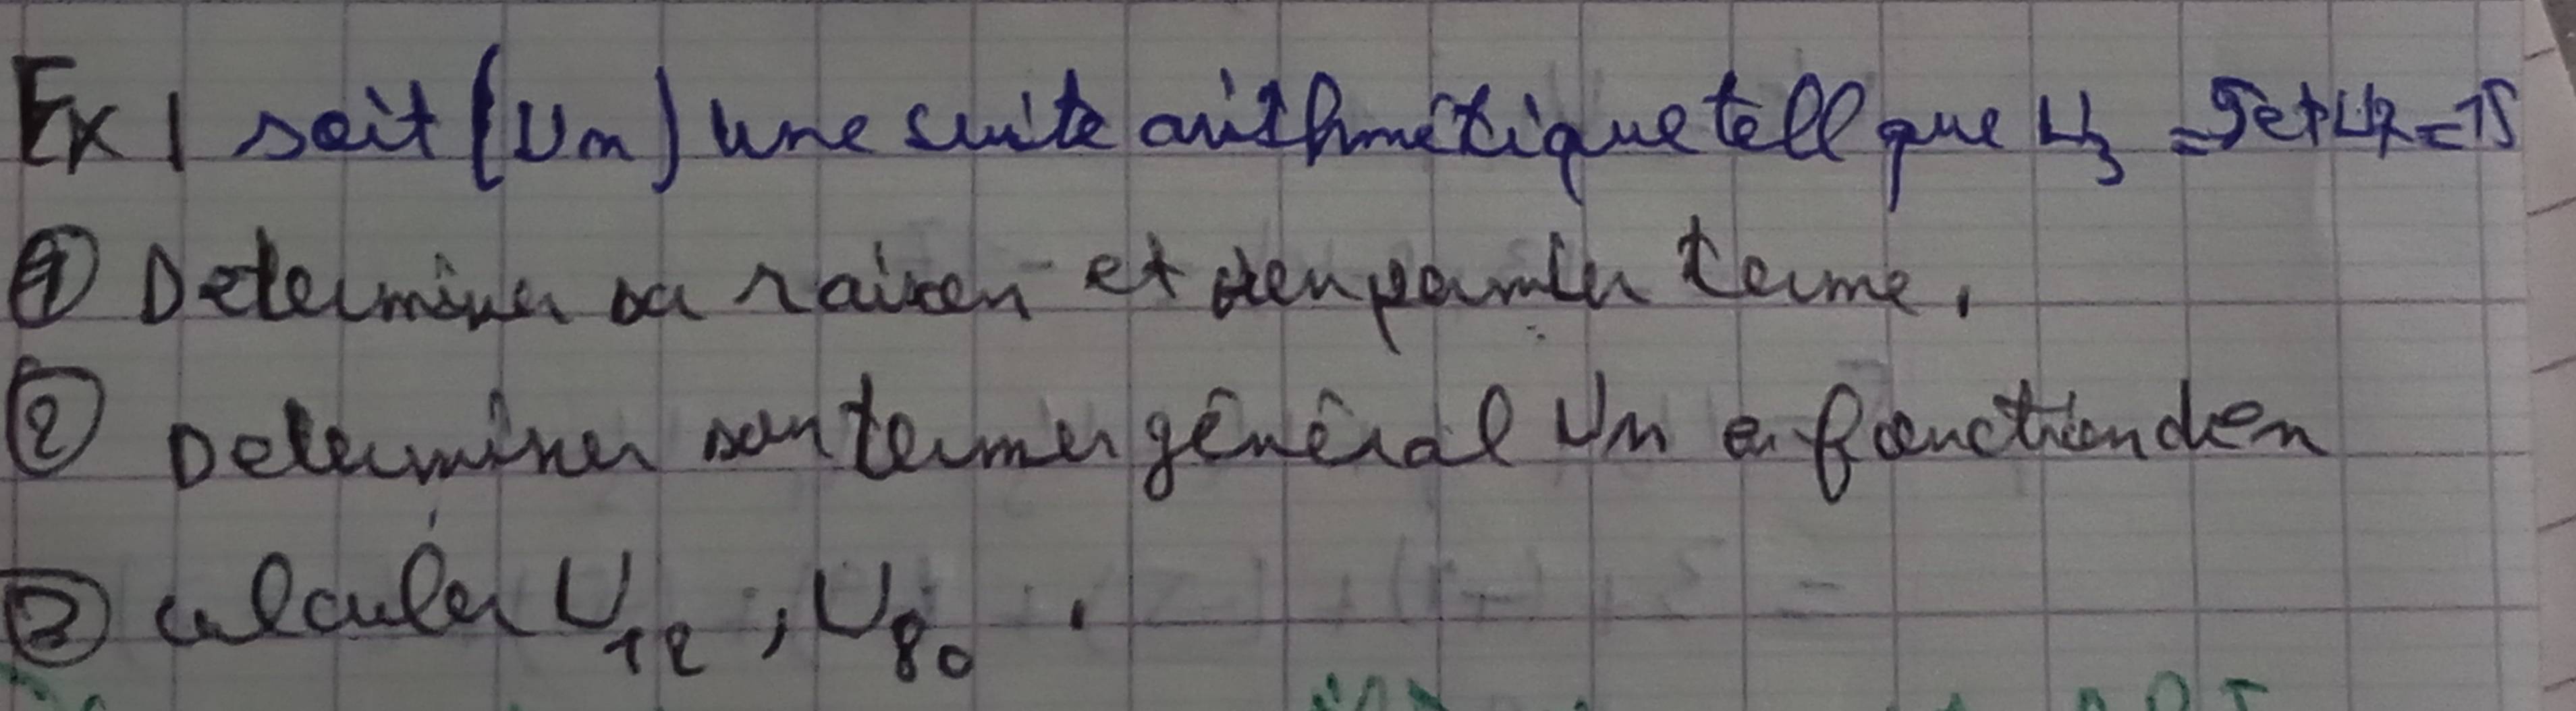 Ex 1 soit (Un) une suite arithmétique tell que U3 = 5 et U7 = 15
① Determiner sa raison et son pamier terme.
② Determiner son termer général Un en fonction den
③ calculer U12 , U80 .